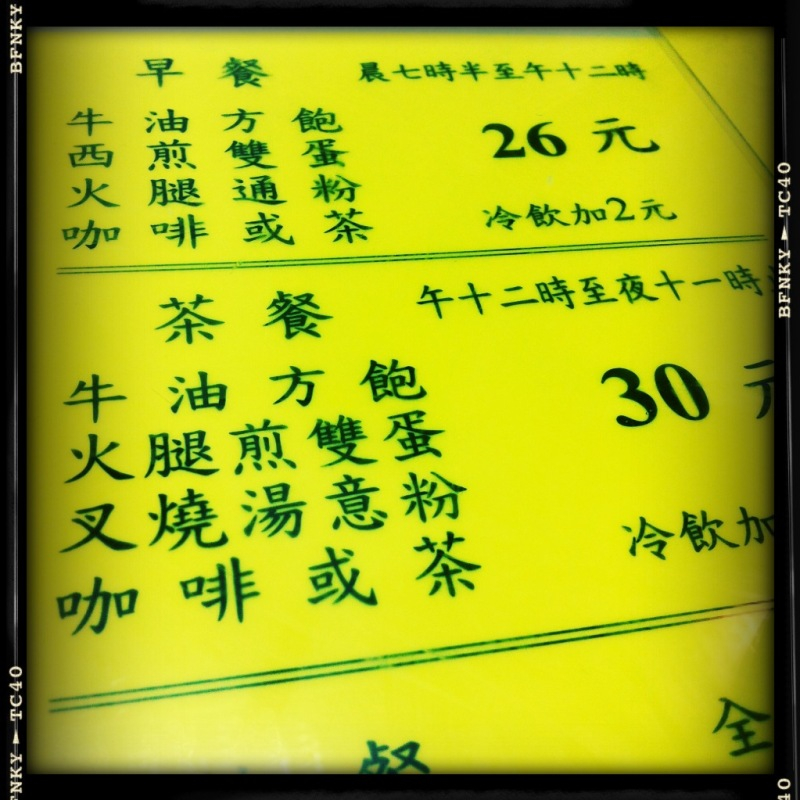 早餐 晨七時半至午十二時
牛油方飽
西煎雙蛋 26元
火腿通粉
咖啡或茶 冷飲加2元
茶餐 午十二時至夜十一時
牛油方飽 30元
火腿煎雙蛋
叉燒湯意粉 冷飲加
咖啡或茶
餐 全
BFNKY
BFNKY ► TC40
FNKY ► TC40
40